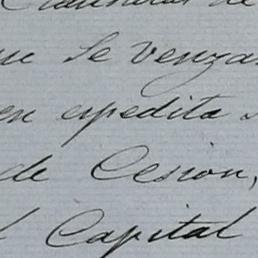 se venza
en expedita
de Cesion,
Capital